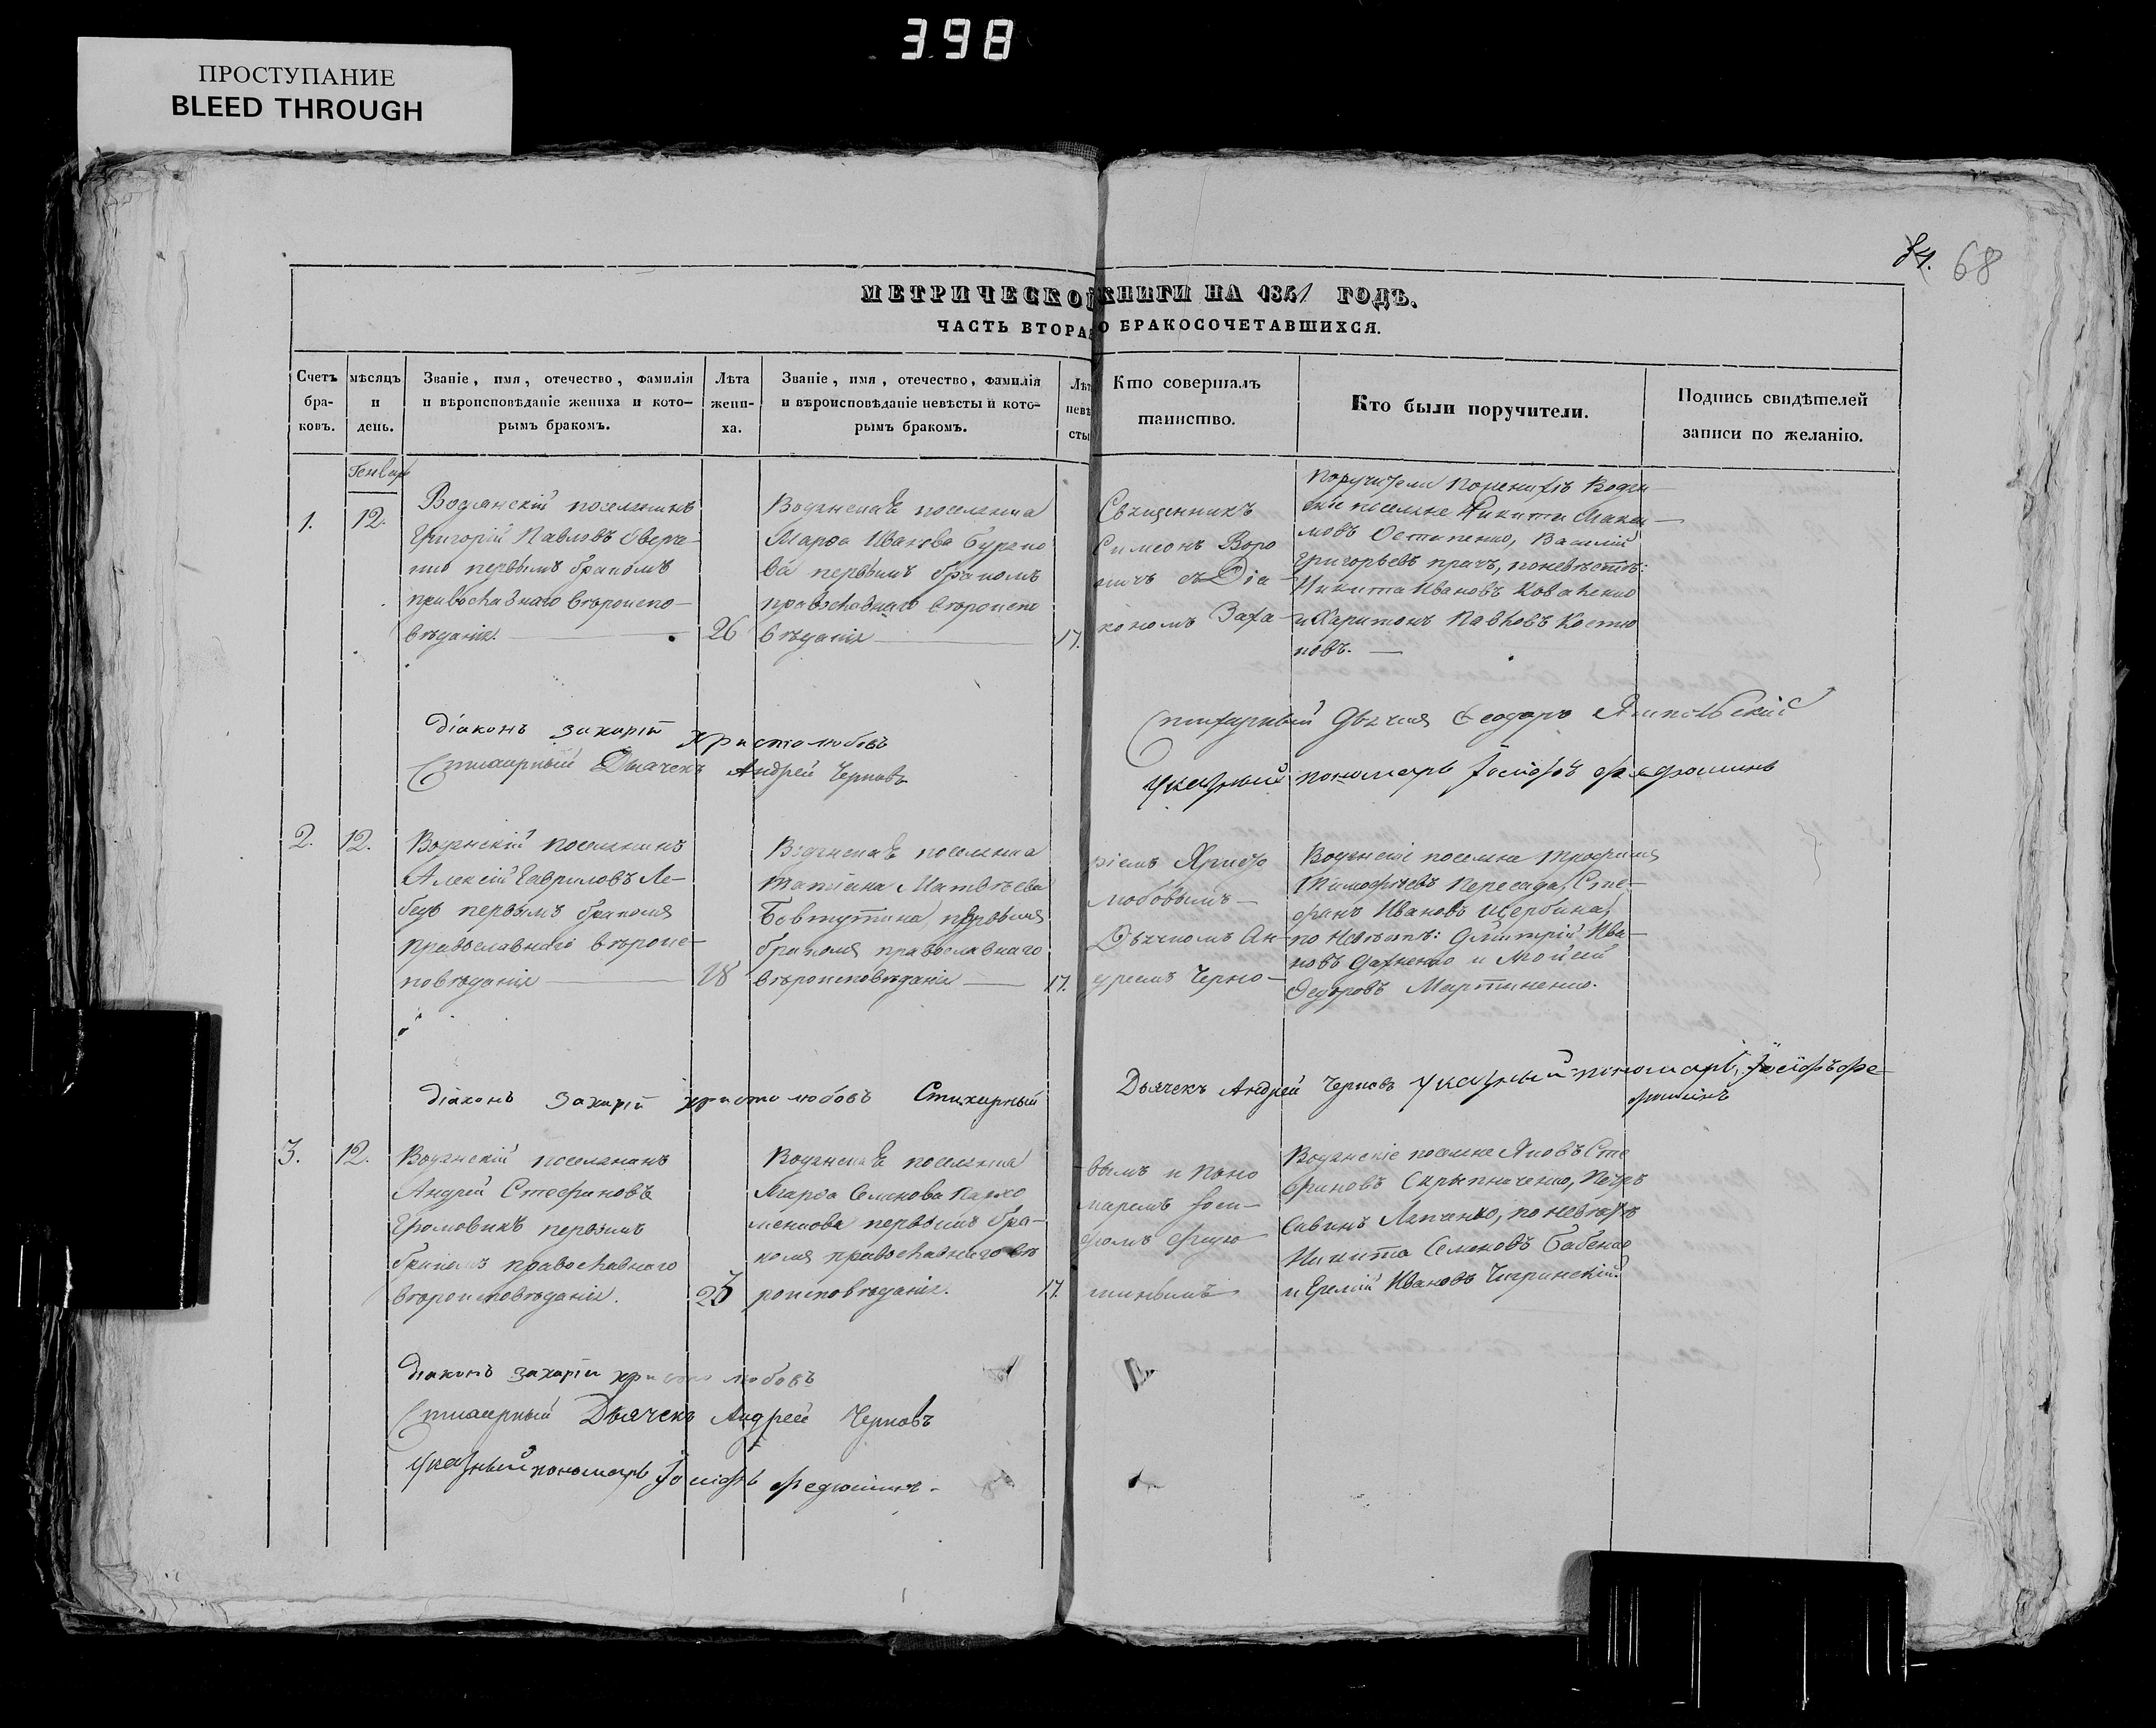 398
ПРОСТУПАНИЕ
BLEED THROUGH
68
МЕТРИЧЕСКОЙ КНИГИ НА 1841 ГОДЪ.
ЧАСТЬ ВТОРАЯ О БРАКОСОЧЕТАВШИХСЯ.
Счетъ бра-
ковъ.
мѣсяцъ
и
день.
Званіе, имя, отечество, фамилія
и вѣроисповѣданіе жениха и кото-
рымъ бракомъ.
Лѣта
жени-
ха.
Званіе, имя, отечество, фамилія
и вѣроисповѣданіе невѣсты и кото-
рымъ бракомъ.
Лѣт
невѣ
сты
Кто совершалъ
таинство.
Кто были поручители.
Подпись свидѣтелей
записи по желанію.
Генварь
1.
12.
Водянскій поселянинъ
Григорій Павловъ
первымъ бракомъ
православнаго вѣроиспо-
вѣданія.
26
поселянка
Марѳа Иванова
первымъ бракомъ
православнаго вѣроиспо
вѣданія
17.
Священникъ
Симеонъ Воро
съ Діа-
кономъ Заха-
Поручители
поселяне Никита Макси-
мовъ Остапенко, Василій
Григорьевъ
Никита Ивановъ Коваленко
и Харитонъ Павловъ Костю
ковъ.
Діаконъ Захарій Христолюбовъ
Стихарный Дьячекъ Андрей Черновъ
Стихарный Ѳеодоръ Ямпольскій
Указный пономарь Іосифъ Федюшинъ
2.
12.
Водянскій поселянинъ
Алексій Гавриловъ Ле-
бедь первымъ бракомъ
православнаго вѣроис-
повѣданія
18
поселянка
Татіана Матвѣева
первымъ
бракомъ православнаго
вѣроисповѣданія
17.
ріемъ Христо
любовымъ
Дьячкомъ Ан-
дреемъ Черно-
Водянскіе поселяне Трофимъ
Тимофѣевъ Пересада, Сте-
фанъ Ивановъ Щербина,
по невѣстѣ: Дмитрій Ива-
новъ и Мойсей
Федоровъ Мартиненко.
Діаконъ Захарій Христолюбовъ Стихарный
Дьячекъ Андрей Черновъ Указный пономарь Іосифъ Фе-
дюшинъ
3.
12.
Водянскій поселянинъ
Андрей Стефановъ
Громовикъ первымъ
бракомъ православнаго
вѣроисповѣданія.
23
поселянка
Марѳа Семенова Пархо
менкова первымъ бра-
комъ православнаго вѣ
роисповѣданія.
17.
вымъ и поно
маремъ Іоси-
фомъ Федю
шинымъ
Водянскіе поселяне Яковъ Сте
фановъ Скрыпниченко, Петръ
Савинъ Лапченко, по невѣстѣ
Никита Семеновъ Бабенко
и Еремій Ивановъ Чигринскій.
Діаконъ Захарій Христолюбовъ
Стихарный Дьячекъ Андрей Черновъ
Указный пономарь Іосифъ Федюшинъ.